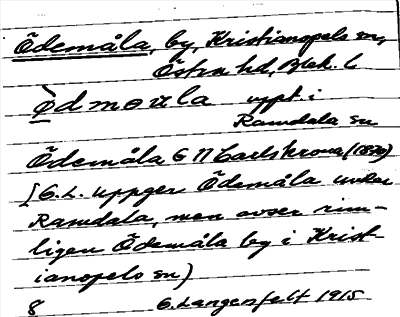 Ödemåla, by, Kristianopels sn,
Östra hd, Blek. l.
ø̀dmoɐla uppt. i
Ramdala sn
Ödemåla G Π Carlskrona (1870)
[G.L. uppger Ödemåla under
Ramdala, men avser rim-
ligen Ödemåla by i Krist-
ianopels sn)
8 G. Langenfelt 1915